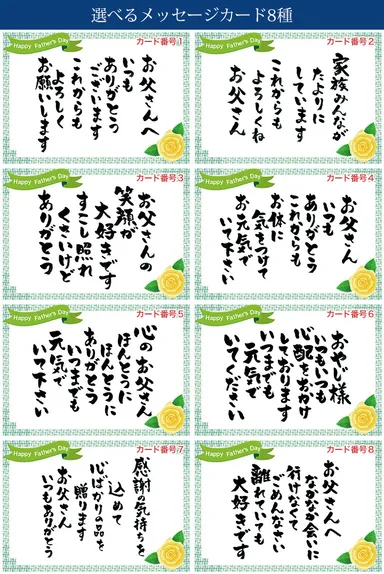 選べるメッセージカード8種
Happy Father's Day
カード番号1
お父さんへ
いつも
ありがとう
ございます
これからも
よろしく
お願いします
Happy Father's Day
カード番号2
家族みんなが
たよりに
しています
これからも
よろしくね
お父さん
Happy Father's Day
カード番号3
お父さんの
笑顔が
大好きです
すこし照れ
くさいけど
ありがとう
Happy Father's Day
カード番号4
お父さん
いつも
ありがとう
これからも
お体に
気をつけて
お元気で
いて下さい
Happy Father's Day
カード番号5
心のお父さん
ほんとうに
ほんとうに
ありがとう
いつまでも
元気で
いて下さい
Happy Father's Day
カード番号6
おやじ様
いつもいつも
心配をおかけ
しております
いつまでも
元気で
いてください
Happy Father's Day
カード番号7
感謝の気持ちを、
込めて
心ばかりの品を
贈ります
お父さん
いつもありがとう
Happy Father's Day
カード番号8
お父さんへ
なかなか会いに
行けなくて
ごめんなさい
離れていても
大好きです